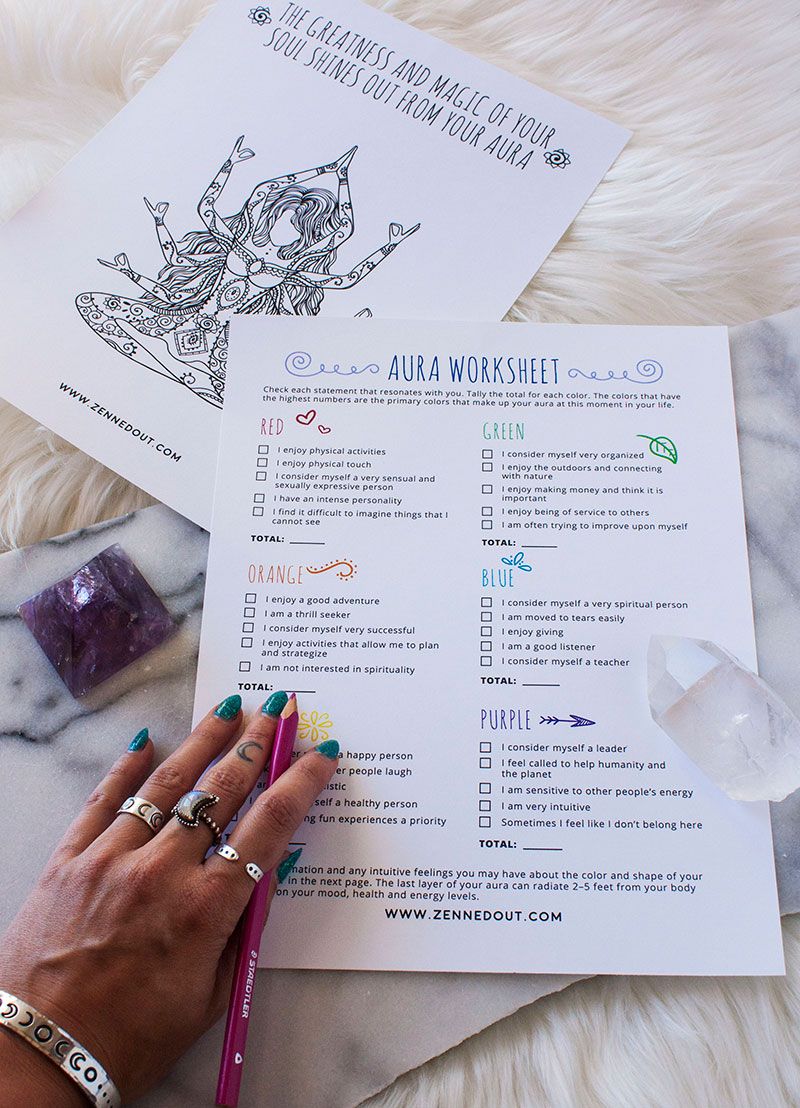 THE GREATNESS AND MAGIC OF YOUR
SOUL SHINES OUT FROM YOUR AURA
WWW.ZENNEDOUT.COM
AURA WORKSHEET
Check each statement that resonates with you. Tally the total for each color. The colors that have
the highest numbers are the primary colors that make up your aura at this moment in your life.
RED
I enjoy physical activities
I enjoy physical touch
I consider myself a very sensual and
sexually expressive person
I have an intense personality
I find it difficult to imagine things that I
cannot see
TOTAL:
ORANGE
I enjoy a good adventure
I am a thrill seeker
I consider myself very successful
I enjoy activities that allow me to plan
and strategize
I am not interested in spirituality
TOTAL:
a happy person
people laugh
a healthy person
fun experiences a priority
GREEN
I consider myself very organized
I enjoy the outdoors and connecting
with nature
I enjoy making money and think it is
important
I enjoy being of service to others
I am often trying to improve upon myself
TOTAL:
BLUE
I consider myself a very spiritual person
I am moved to tears easily
I enjoy giving
I am a good listener
I consider myself a teacher
TOTAL:
PURPLE
I consider myself a leader
I feel called to help humanity and
the planet
I am sensitive to other people's energy
I am very intuitive
Sometimes I feel like I don't belong here
TOTAL:
and any intuitive feelings you may have about the color and shape of your
in the next page. The last layer of your aura can radiate 2–5 feet from your body
on your mood, health and energy levels.
WWW.ZENNEDOUT.COM
STAEDTLER